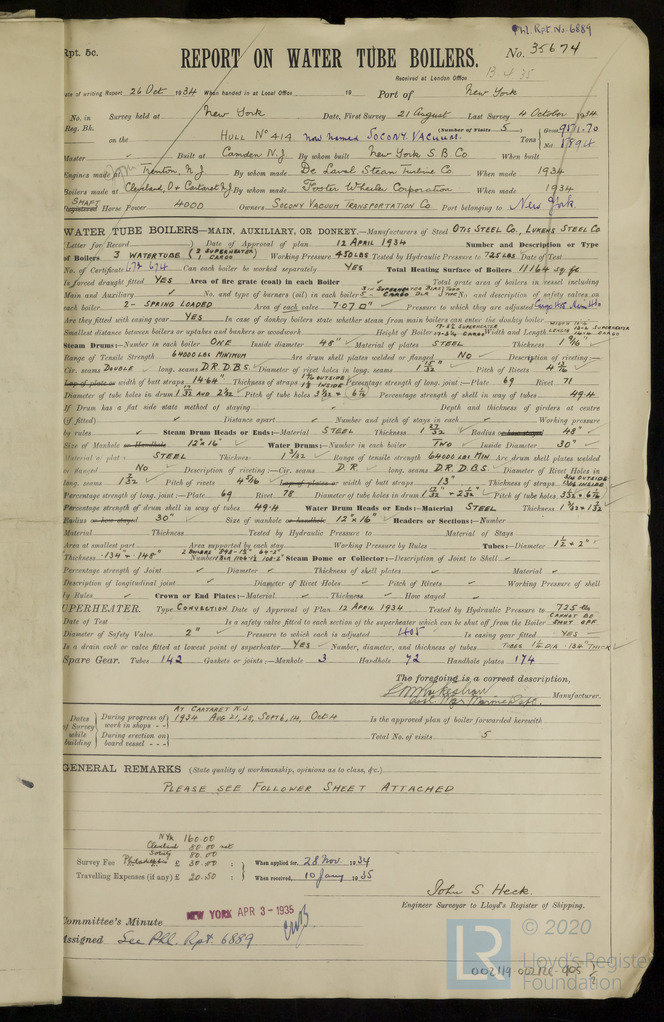 Phl. Rpt. No. 6889
Rpt. 5c.
REPORT ON WATER TUBE BOILERS. No. 35674
Received at London Office
Date of writing Report 26 Oct 1934 When handed in at Local Office 19 Port of New York
No. in Survey held at New York Date, First Survey 21 August Last Survey 4 October 1934
Reg. Bk. (Number of Visits 5)
on the HULL No 414 now named SOCONY VACUUM. Tons
Master Built at Camden N.J By whom built New York S.B Co When built
Engines made at Trenton, N.J By whom made De Laval Steam Turbine Co When made 1934
Boilers made at Cleveland, O & Cartaret N.J By whom made Foster Wheeler Corporation When made 1934
SHAFT Horse Power 4000 Owners SOCONY VACUUM TRANSPORTATION Co Port belonging to New York.
WATER TUBE BOILERS—MAIN, AUXILIARY, OR DONKEY.—Manufacturers of Steel OTIS STEEL CO., LUKENS STEEL CO
(Letter for Record ) Date of Approval of plan 12 APRIL 1934 Number and Description or Type
of Boilers 3 WATERTUBE (2 SUPERHEATER 1 CARGO Working Pressure 450 LBS Tested by Hydraulic Pressure to 725 LBS Date of Test
No. of Certificate 673 674 Can each boiler be worked separately YES Total Heating Surface of Boilers 11164 sq ft
Is forced draught fitted YES Area of fire grate (coal) in each Boiler Total grate area of boilers in vessel including
Main and Auxiliary No. and type of burners (oil) in each boiler No. and description of safety valves on
each boiler 2 - SPRING LOADED Area of each valve 7.07 □" Pressure to which they are adjusted
Are they fitted with easing gear YES In case of donkey boilers state whether steam from main boilers can enter the donkey boiler
Smallest distance between boilers or uptakes and bunkers or woodwork Height of Boiler Width and Length
Steam Drums:—Number in each boiler ONE Inside diameter 48" Material of plates STEEL Thickness 1 9/16"
Range of Tensile Strength 64000 LBS MINIMUM Are drum shell plates welded or flanged NO Description of riveting:—
Cir. seams DOUBLE long. seams D.R.D.B.S. Diameter of rivet holes in long. seams 1 15/32" Pitch of Rivets
Lap of plates or width of butt straps Thickness of straps Percentage strength of long. joint:—Plate 69 Rivet 71
Diameter of tube holes in drum Pitch of tube holes Percentage strength of shell in way of tubes 49.4
If Drum has a flat side state method of staying Depth and thickness of girders at centre
(if fitted) Distance apart Number and pitch of stays in each Working pressure
by rules Steam Drum Heads or Ends:—Material STEEL Thickness Radius or how stayed 48"
Size of Manhole or Handhole 12"x16" Water Drums:—Number in each boiler TWO Inside Diameter 30"
Material of plates STEEL Thickness 1 3/32 Range of tensile strength 64000 LBS MIN Are drum shell plates welded
or flanged NO Description of riveting:—Cir. seams D.R. long. seams D.R. D.B.S. Diameter of Rivet Holes in
long. seams 1 5/32 Pitch of rivets 4 5/16 Lap of plates or width of butt straps 13" Thickness of straps
Percentage strength of long. joint:—Plate 69 Rivet 78 Diameter of tube holes in drum Pitch of tube holes
Percentage strength of drum shell in way of tubes 49.4 Water Drum Heads or Ends:—Material STEEL Thickness
Radius or how stayed 30" Size of manhole or handhole 12"x16" Headers or Sections:—Number
Material Thickness Tested by Hydraulic Pressure to Material of Stays
Area at smallest part Area supported by each stay Working Pressure by Rules Tubes:—Diameter 1 1/2 & 2"
Thickness .134" & .148" Number Steam Dome or Collector:—Description of Joint to Shell
Percentage strength of Joint Diameter Thickness of shell plates Material
Description of longitudinal joint Diameter of Rivet Holes Pitch of Rivets Working Pressure of shell
by Rules Crown or End Plates:—Material Thickness How stayed
SUPERHEATER. Type CONVECTION Date of Approval of Plan 12 APRIL 1934 Tested by Hydraulic Pressure to 725 lbs
Date of Test Is a safety valve fitted to each section of the superheater which can be shut off from the Boiler CANNOT BE SHUT OFF
Diameter of Safety Valve 2" Pressure to which each is adjusted 405 Is easing gear fitted YES
Is a drain cock or valve fitted at lowest point of superheater YES Number, diameter, and thickness of tubes TUBES 1 1/2 DIA .134" THICK
Spare Gear. Tubes 142 Gaskets or joints:—Manhole 3 Handhole 72 Handhole plates 174
The foregoing is a correct description,
Manufacturer.
AT CARTARET N.J.
Dates of Survey while building
During progress of work in shops - - 1934 AUG 21, 28, SEPT 6, 14, Oct 4 Is the approved plan of boiler forwarded herewith
During erection on board vessel - - - Total No. of visits 5
GENERAL REMARKS (State quality of workmanship, opinions as to class, &c.)
PLEASE SEE FOLLOWER SHEET ATTACHED
NYK 160.00
Cleveland 80.00 net
Society 80.00
Survey Fee Philadelphia £ 30.00 : When applied for, 28 Nov. 1934
Travelling Expenses (if any) £ 20.50 : When received, 10 Jany 1935
John S Heck.
Engineer Surveyor to Lloyd's Register of Shipping.
Committee's Minute NEW YORK APR 3 - 1935
Assigned See Phl. Rpt. 6889
© 2020
LR
Lloyd's Register
Foundation
002119-002126-005 2/2